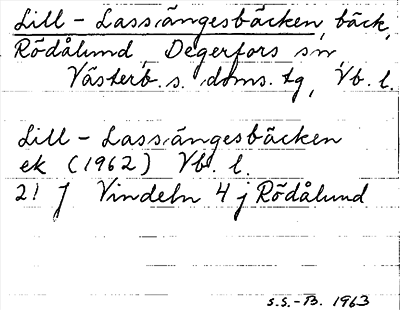 Lill-Lassängesbäcken, bäck,
Rödålund, Degerfors sn,
Västerb. s. doms. tg, Vb. l.
Lill-Lassängesbäcken
ek (1962) Vb. l.
21 J Vindeln 4 j Rödålund
S.S.-B. 1963